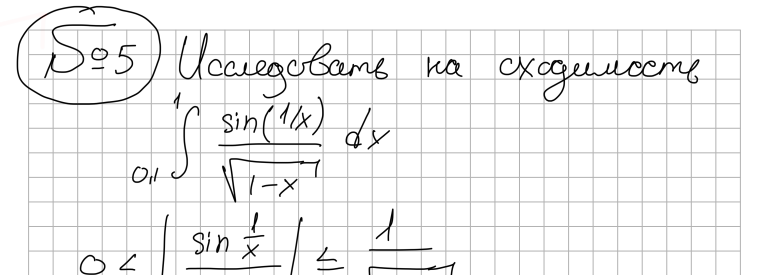 №5 Исследовать на сходимость
0,1 ∫ 1 sin(1/x) / √(1-x) dx
0 < | sin 1/x | ≤ 1